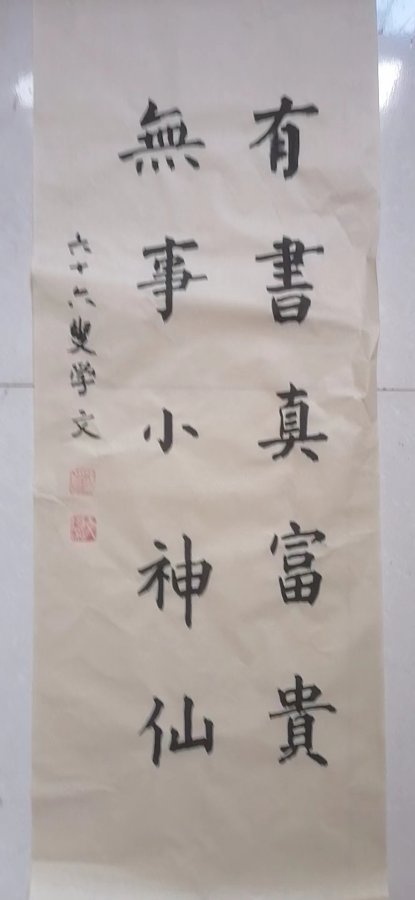 有書真富貴
無事小神仙
六十六叟学文